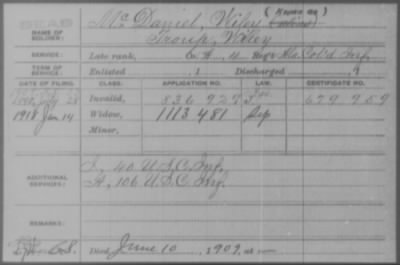 DEAD
NAME OF SOLDIER: Mc Daniel, Wiley (Known as)
Troup, Wiley
SERVICE: Late rank, Co. H, 4 Reg't Ala. Col'd Inf.
TERM OF SERVICE: Enlisted , 1 Discharged , 1
DATE OF FILING. CLASS. APPLICATION NO. LAW. CERTIFICATE NO.
July 28 Invalid, 836 927 679 959
1918 Jan 14 Widow, 1113 481 Sep
Minor,
ADDITIONAL SERVICES: I, 40 U.S.C. Inf.
H, 106 U.S.C. Inf.
REMARKS:
Died June 10, 1909, at